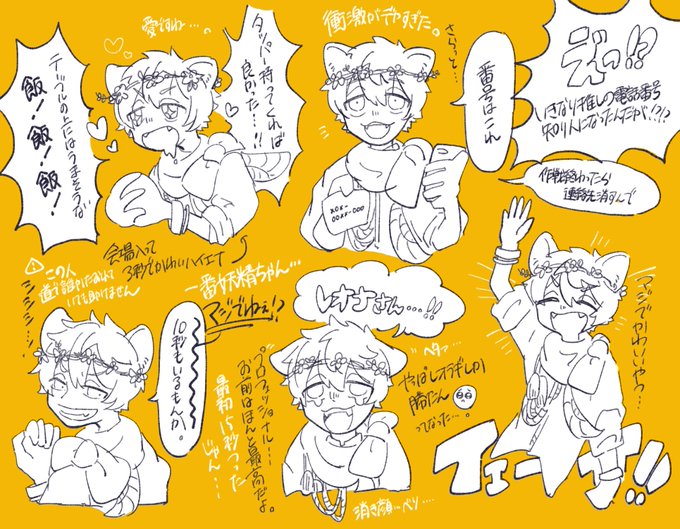 えっ!!?
いきなり推しの電話番号
知り人になったんだが!?!?
作戦終わったら
連絡先消すんで
衝撃がデカすぎた。
さらっと…
番号はこれ
XOX-
愛ですわ…
タッパー持ってくれば
良かった…!!
テーブルの上にはうまそうな
飯!飯!飯!
会場入って
3秒でかわいいハイエナ
一番妖精ちゃん…
マジでねぇ!?
⚠この人
シシシシ…ッ!
10秒もいるもんか。
レオナさん…!!
ペタ…
やっぱしオラギしか
勝たん🥺
ってなった…。
プロフェッショナル…
お前はほんと最高だよ。
最初15秒つった
じゃん…
消き顔〜ペソ…
マジでかわいいやつ…
イエーーイ!!